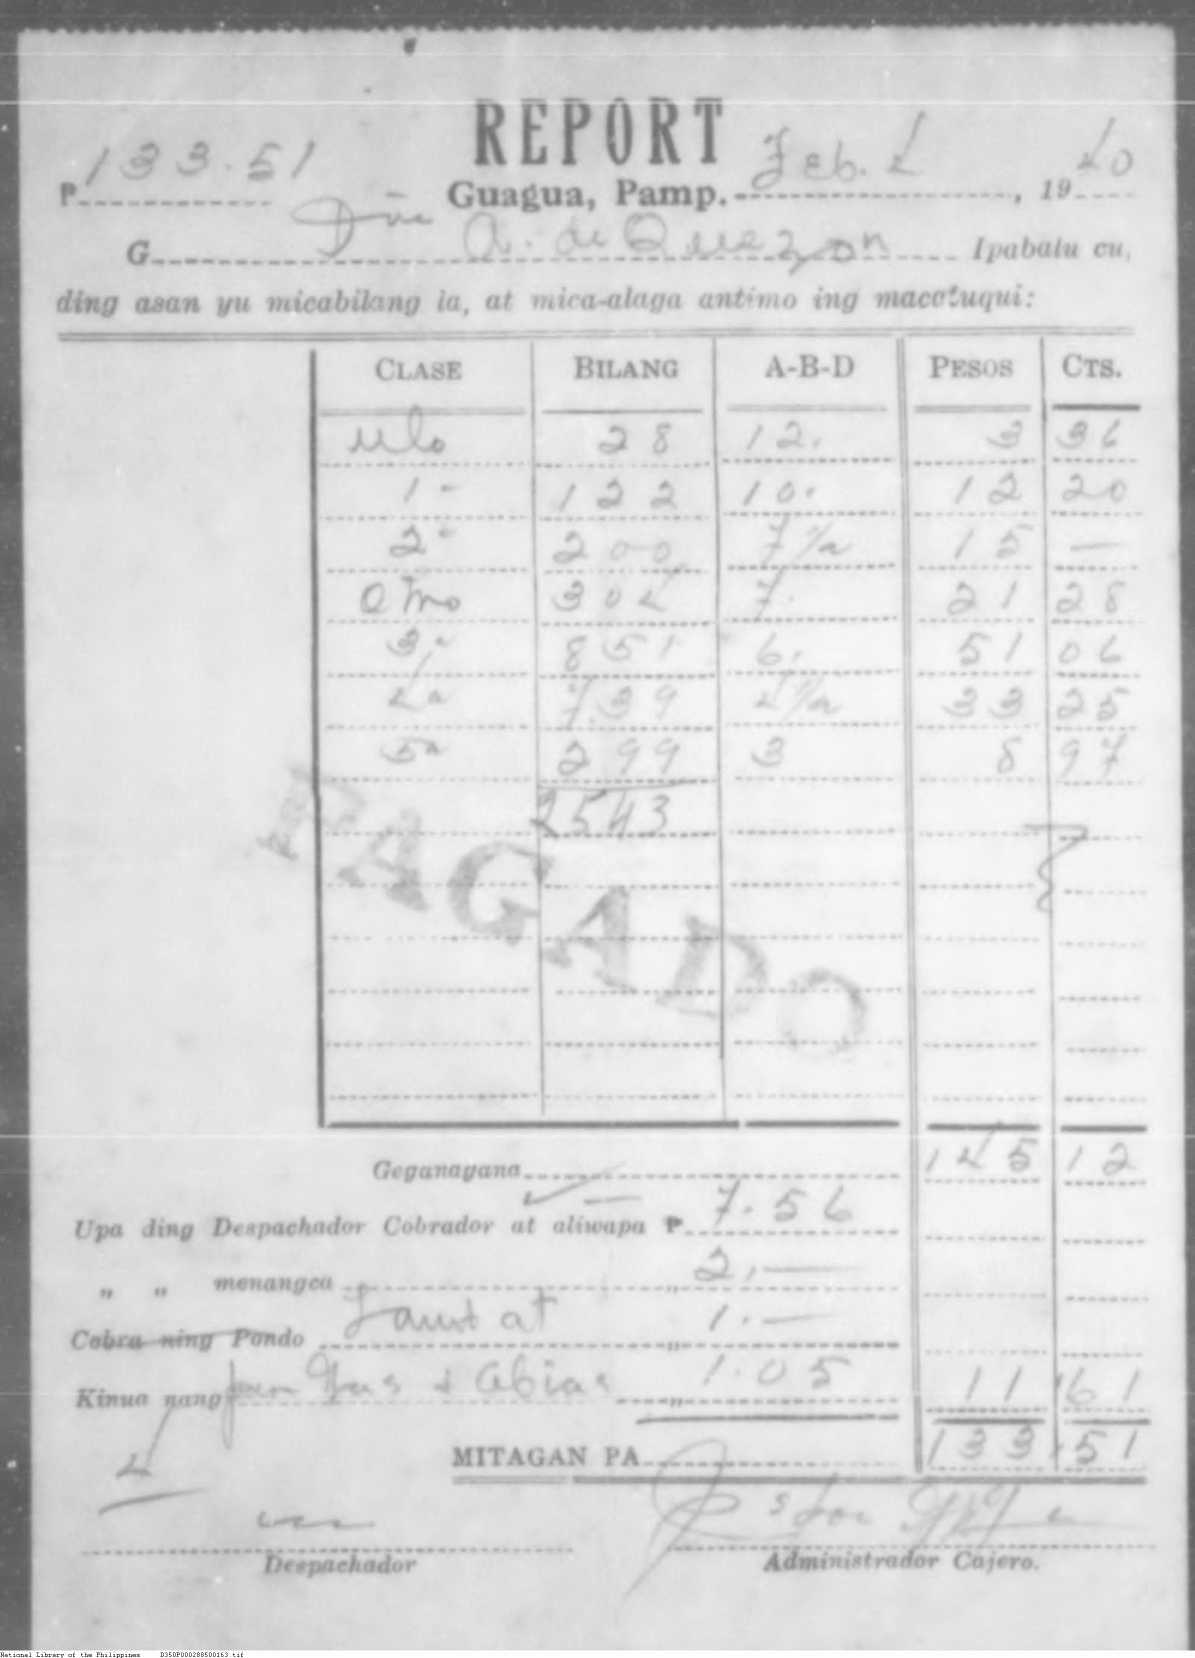 REPORT
₱ 133.51 Guagua, Pamp. Feb. 4, 1940
G Dña A. de Quezon Ipabalu cu,
ding asan yu micabilang ia, at mica-alaga antimo ing macatuqui:
CLASE BILANG A-B-D PESOS CTS.
ulo 28 12. 3 36
1- 122 10. 12 20
2- 200 7 ½ 15 —
Otro 304 7. 21 28
3- 851 6. 51 06
4a 739 4 ½ 33 25
5a 299 3 8 97
2543
PAGADO
Geganagana 145 12
Upa ding Despachador Cobrador at aliwapa ₱ 7.56
„ „ menangca „ 2.—
Cobra ning Pondo „ 1.—
Kinua nang „ 1.05 11 61
MITAGAN PA 133.51
4
Despachador
Administrador Cajero.
National Library of the Philippines D350P000288500163.tif